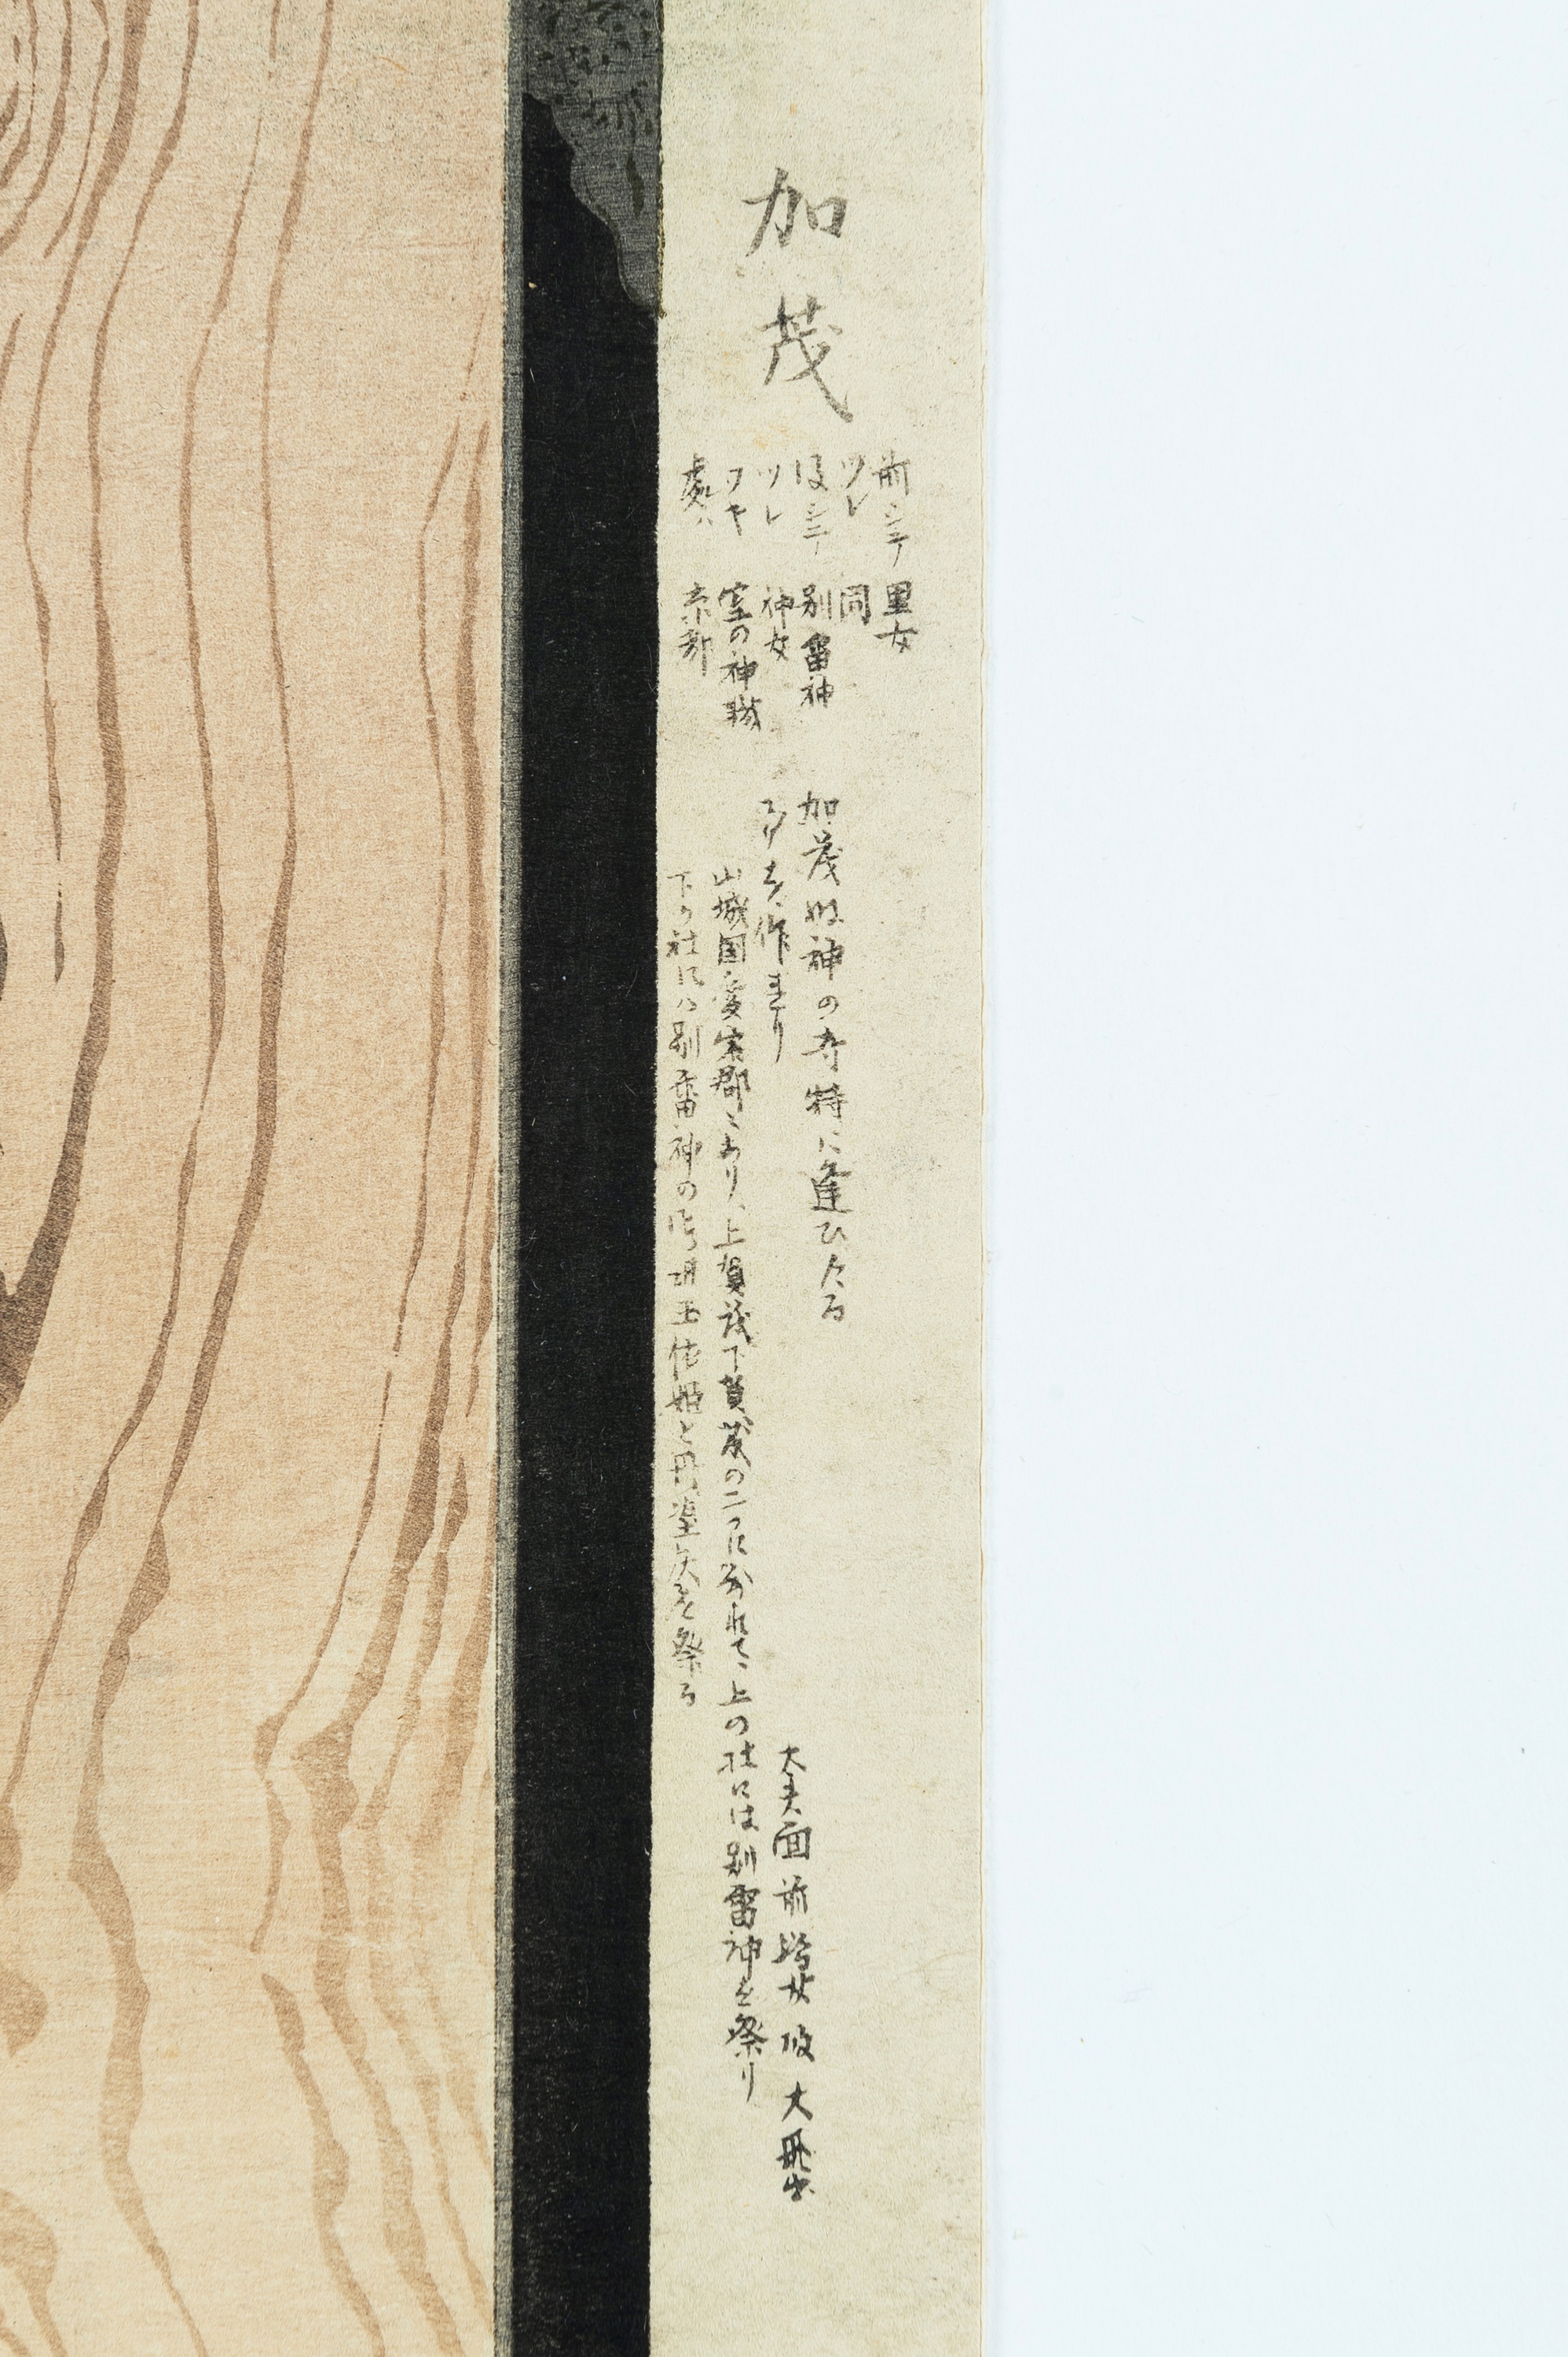 加茂
前シテ 里女
ツレ 同
後シテ 別雷神
ツレ 神女
ワキ 室の神職
處ハ 京都
加茂明神の 特に逢ひたる
作まり
山城国愛宕郡にあり、上賀茂下賀茂の二つに分れて、上の社には別雷神を祭り
下の社にハ別雷神の御 玉依姫と丹塗矢を祭る
大夫面 前 増女 後 大飛出